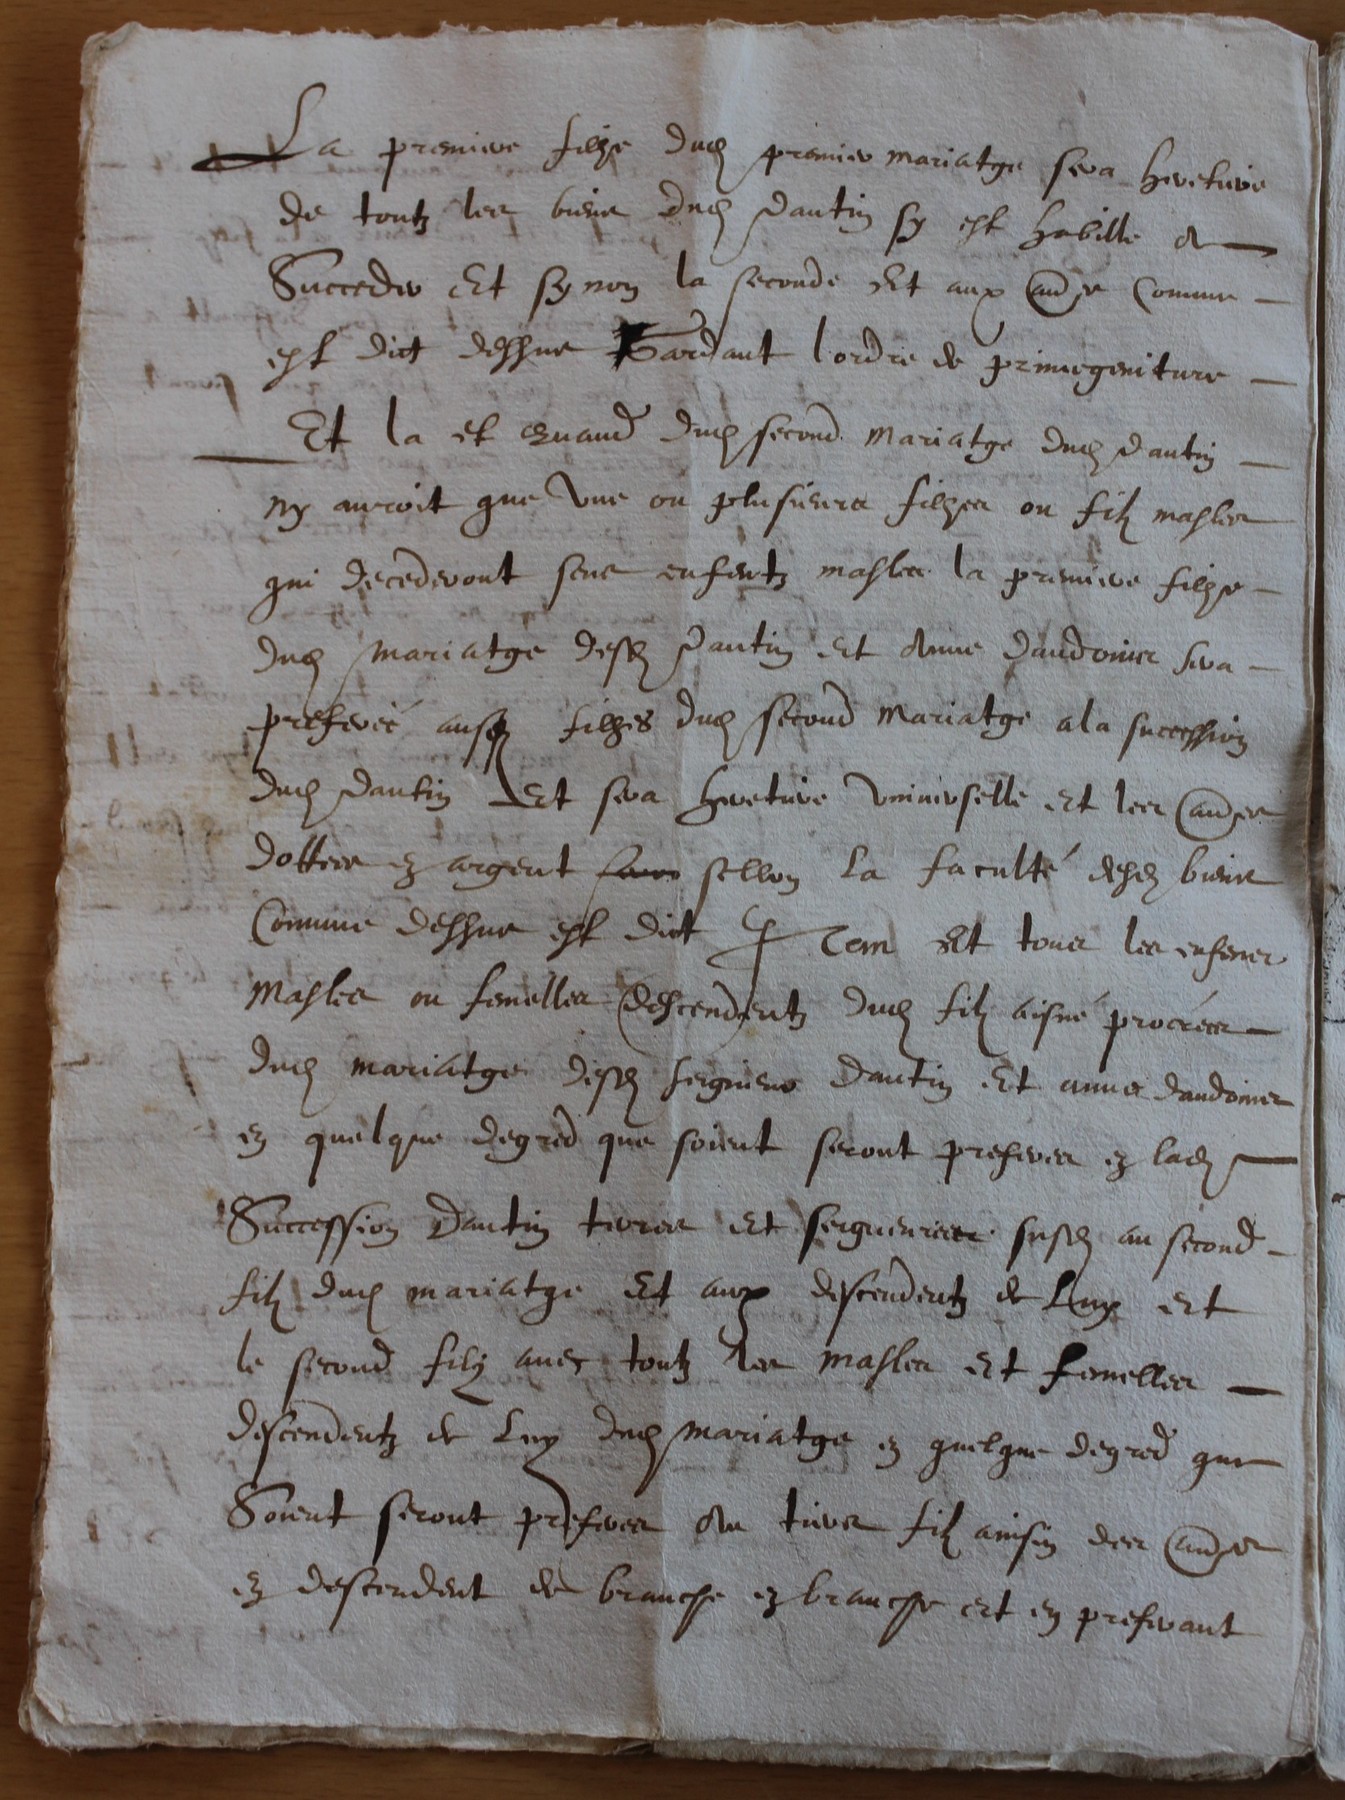 La premiere filhe dud premier mariatge sera heretiere
de toutz les biens dud Dantin sy est habille a
Succeder Et sy non la seconde Et aux aues comme
est dict dessus Gardant lordre de primogeniture
Et la et quand dud second mariatge dud Dantin
ny auroit que une ou plusieurs filhes ou filz masles
qui decederont sens enfentz masles la premiere filhe
dud mariatge desd Dantin et Anne Dandoins sera
preferée ausd filhes dud second mariatge a la succession
dud Dantin Et sera heretiere universelle et les aues
dottees en argent sellon la faculté desd biens
Comme dessus est dict Item Et tous les enfens
Masles ou femelles descendentz dud filz aisné procrées
dud mariatge desd seigneur Dantin Et anne dandoins
en quelque degred que soient seront preferes en lad
Succession Dantin terres et seigneuries susd au second
filz dud mariatge Et aux descendentz de Luy et
le second filz avec toutz les masles et femelles
descendentz de Luy dud mariatge en quelque degred que
Soient seront preferes au tiers filz ainsin des aues
en descendent de branche en branche et en preferant